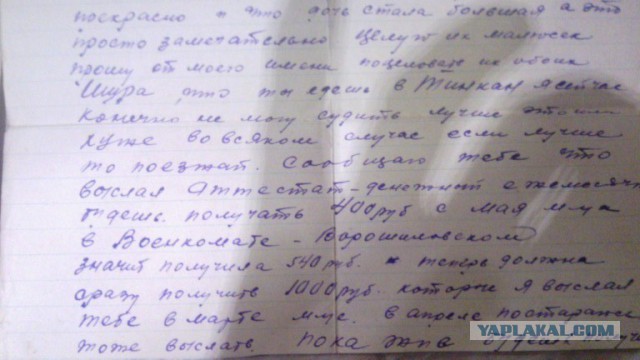 прекрасно и что дочь стала большая а это
просто замечательно целую их малюсек
прошу от моего имени поцеловать их обоих
Шура что ты едешь в Тинкан я сейчас
конечно не могу судить лучше это или
хуже во всяком случае если лучше
то поезжай. Сообщаю тебе что
выслал Аттестат-денежный ежемесячн
будешь получать 400 руб с мая м-ца
в Военкомате - Ворошиловском
значит получила 540 руб. и теперь должна
сразу получить 1000 руб. которые я выслал
тебе в марте м-це. в апреле постараюсь
тоже выслать. пока это
YAPLAKAL.COM